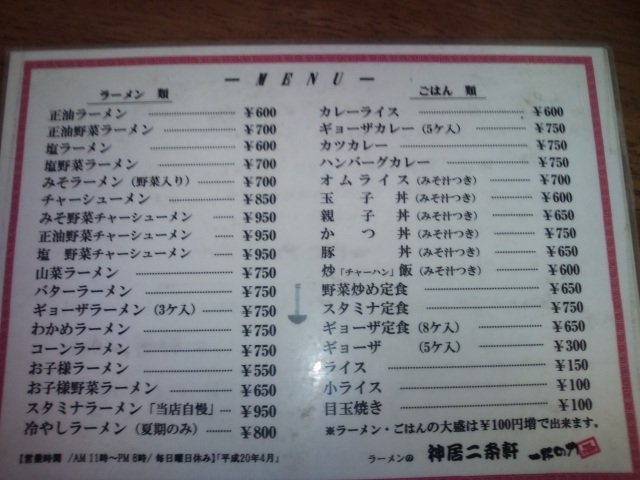 — M E N U —
ラーメン 類
正油ラーメン ¥600
正油野菜ラーメン ¥700
塩ラーメン ¥600
塩野菜ラーメン ¥700
みそラーメン (野菜入り) ¥700
チャーシューメン ¥850
みそ野菜チャーシューメン ¥950
正油野菜チャーシューメン ¥950
塩 野菜チャーシューメン ¥950
山菜ラーメン ¥750
バターラーメン ¥750
ギョーザラーメン (3ケ入) ¥750
わかめラーメン ¥750
コーンラーメン ¥750
お子様ラーメン ¥550
お子様野菜ラーメン ¥650
スタミナラーメン「当店自慢」 ¥950
冷やしラーメン (夏期のみ) ¥800
【営業時間 /AM 11時〜PM 8時/ 毎日曜日休み】「平成20年4月」
ごはん 類
カレーライス ¥600
ギョーザカレー (5ケ入) ¥750
カツカレー ¥750
ハンバーグカレー ¥750
オムライス (みそ汁つき) ¥700
玉子丼 (みそ汁つき) ¥600
親子丼 (みそ汁つき) ¥650
かつ丼 (みそ汁つき) ¥750
豚丼 (みそ汁つき) ¥650
炒「チャーハン」飯 (みそ汁つき) ¥600
野菜炒め定食 ¥650
スタミナ定食 ¥750
ギョーザ定食 (8ケ入) ¥650
ギョーザ (5ケ入) ¥300
ライス ¥150
小ライス ¥100
目玉焼き ¥100
※ラーメン・ごはんの大盛は¥100円増で出来ます。
ラーメンの 神居二条軒